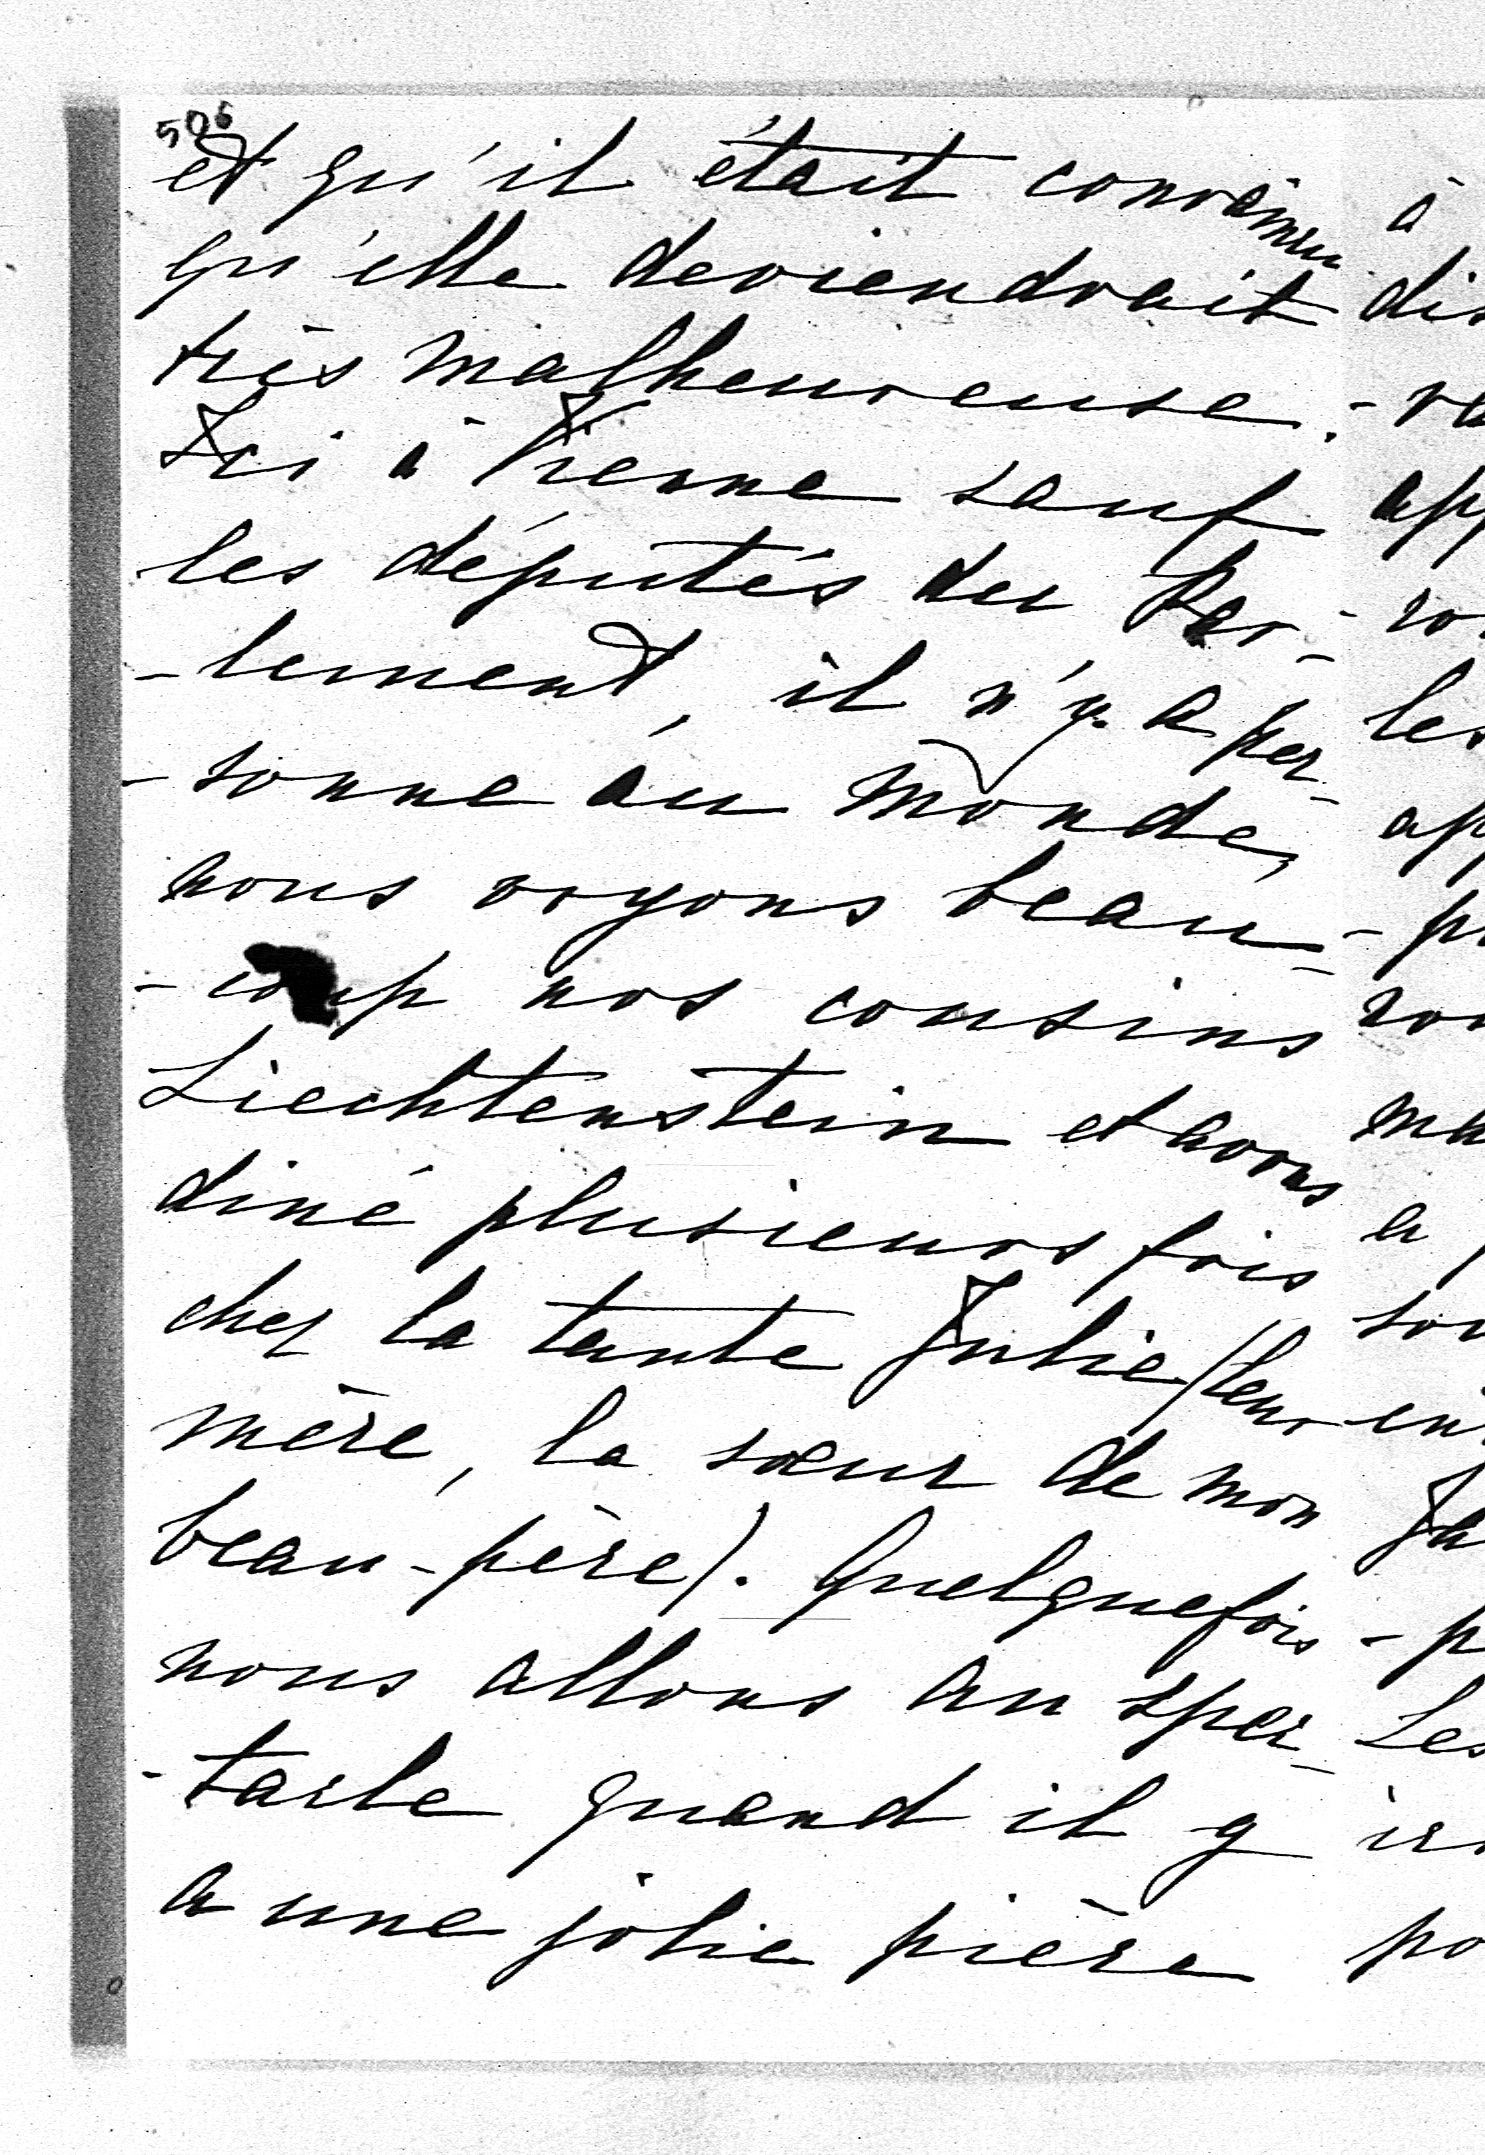 506
et qu'il était convaincu
qu'elle deviendrait
très malheureuse.
Ici à Vienne sauf
les députés du Par-
-lement, il n'y a per-
-sonne au monde,
nous voyons beau-
-coup nos cousins
Liechtenstein et avons
diné plusieurs fois
chez la tante Julie (leur
mère, la sœur de mon
beau-père). Quelquefois
nous allons au spec-
-tacle quand il y
a une jolie pièce